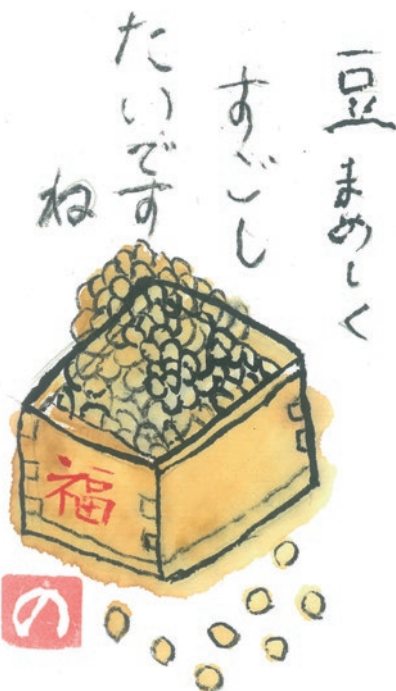 豆まめしく
すごし
たいです
ね
福
の